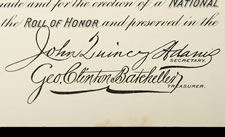 made and for the erection of a NATIONAL
the ROLL OF HONOR and preserved in the
John Quincy Adams
SECRETARY.
Geo. Clinton Batcheller
TREASURER.